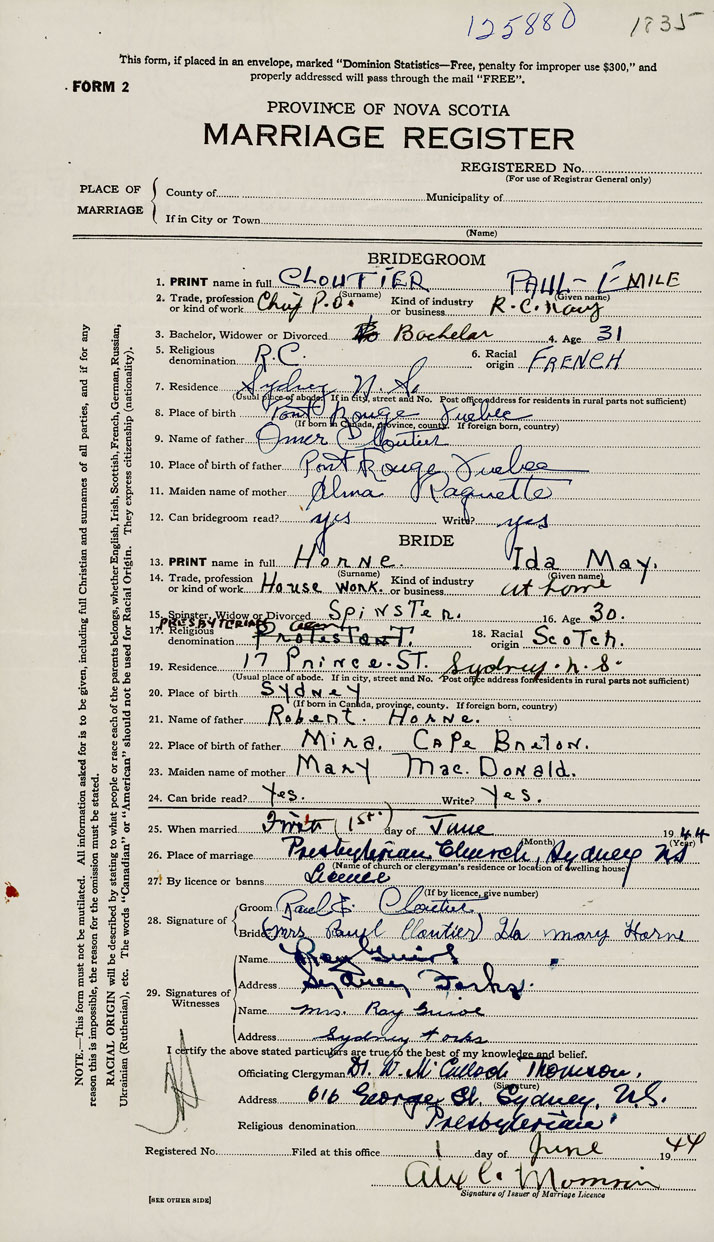 125880 1835
This form, if placed in an envelope, marked "Dominion Statistics—Free, penalty for improper use $300," and
properly addressed will pass through the mail "FREE".
FORM 2
PROVINCE OF NOVA SCOTIA
MARRIAGE REGISTER
REGISTERED No.
(For use of Registrar General only)
PLACE OF MARRIAGE
County of Municipality of
If in City or Town
(Name)
BRIDEGROOM
1. PRINT name in full CLOUTIER PAUL-ÉMILE
(Surname) (Given name)
2. Trade, profession or kind of work Chief P.O. Kind of industry or business R.C. Navy
3. Bachelor, Widower or Divorced Bachelor 4. Age 31
5. Religious denomination R.C. 6. Racial origin FRENCH
7. Residence Sydney N.S.
(Usual place of abode. If in city, street and No. Post office address for residents in rural parts not sufficient)
8. Place of birth Pont Rouge Quebec
(If born in Canada, province, county. If foreign born, country)
9. Name of father Omer Cloutier
10. Place of birth of father Pont Rouge Quebec
11. Maiden name of mother Alma Paquette
12. Can bridegroom read? yes Write? yes
BRIDE
13. PRINT name in full Horne. Ida May.
(Surname) (Given name)
14. Trade, profession or kind of work House work. Kind of industry or business at home
15. Spinster, Widow or Divorced Spinster. 16. Age 30.
17. Religious denomination PRESBYTERIAN Protestant. 18. Racial origin Scotch.
19. Residence 17 Prince. ST. Sydney. N.S.
(Usual place of abode. If in city, street and No. Post office address for residents in rural parts not sufficient)
20. Place of birth Sydney
(If born in Canada, province, county. If foreign born, country)
21. Name of father Robert. Horne.
22. Place of birth of father Mira. Cape Breton.
23. Maiden name of mother Mary Mac. Donald.
24. Can bride read? Yes. Write? Yes.
25. When married First (1st) day of June 1944
(Month) (Year)
26. Place of marriage Presbyterian Church, Sydney NS
(Name of church or clergyman's residence or location of dwelling house)
27. By licence or banns Licence
(If by licence, give number)
28. Signature of Groom Paul E. Cloutier
Bride (Mrs Paul Cloutier) Ida Mary Horne
29. Signatures of Witnesses
Name Ray
Address Sydney Forks.
Name Mrs. Ray
Address Sydney Forks
I certify the above stated particulars are true to the best of my knowledge and belief.
Officiating Clergyman D. W. McCulloch Thomson.
(Signature)
Address 616 George St. Sydney, N.S.
Religious denomination Presbyterian
Registered No. Filed at this office 1 day of June 1944
Alex C.
Signature of Issuer of Marriage Licence
[SEE OTHER SIDE]
NOTE.—This form must not be mutilated. All information asked for is to be given, including full Christian and surnames of all parties, and if for any
reason this is impossible, the reason for the omission must be stated.
RACIAL ORIGIN will be described by stating to what people or race each of the parents belongs, whether English, Irish, Scottish, French, German, Russian,
Ukrainian (Ruthenian), etc. The words "Canadian" or "American" should not be used for Racial Origin. They express citizenship (nationality).